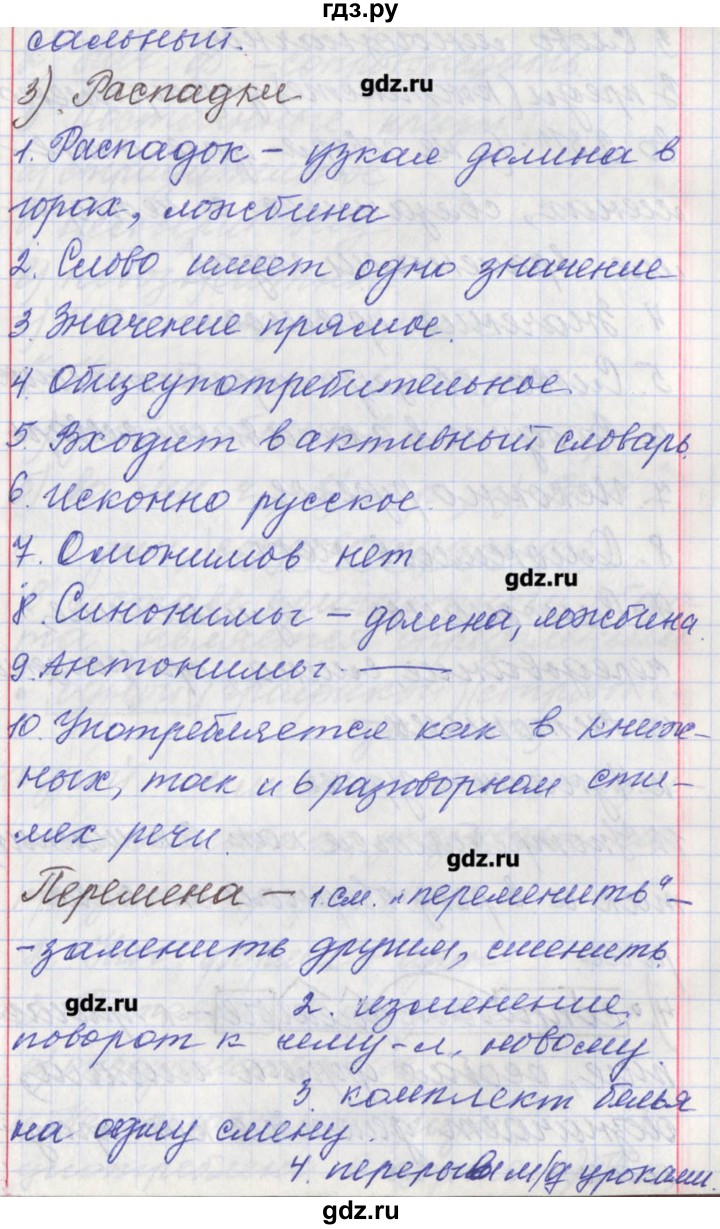 гдз.ру
сальный.
gdz.ru
3) Распадки
1. Распадок – узкая долина в
горах, ложбина
2. Слово имеет одно значение
3. Значение прямое.
4. Общеупотребительное.
5. Входит в активный словарь.
6. Исконно русское.
7. Омонимов нет
gdz.ru
8. Синонимы – долина, ложбина
9. Антонимы –
10. Употребляется как в книж-
ных, так и в разговорном сти-
лях речи.
gdz.ru
Перемена – 1. см. "переменить" –
-заменить другим, сменить.
gdz.ru
2. изменение,
поворот к чему-л. новому.
3. комплект белья
на одну смену.
4. перерыв м/д уроками.
gdz.ru